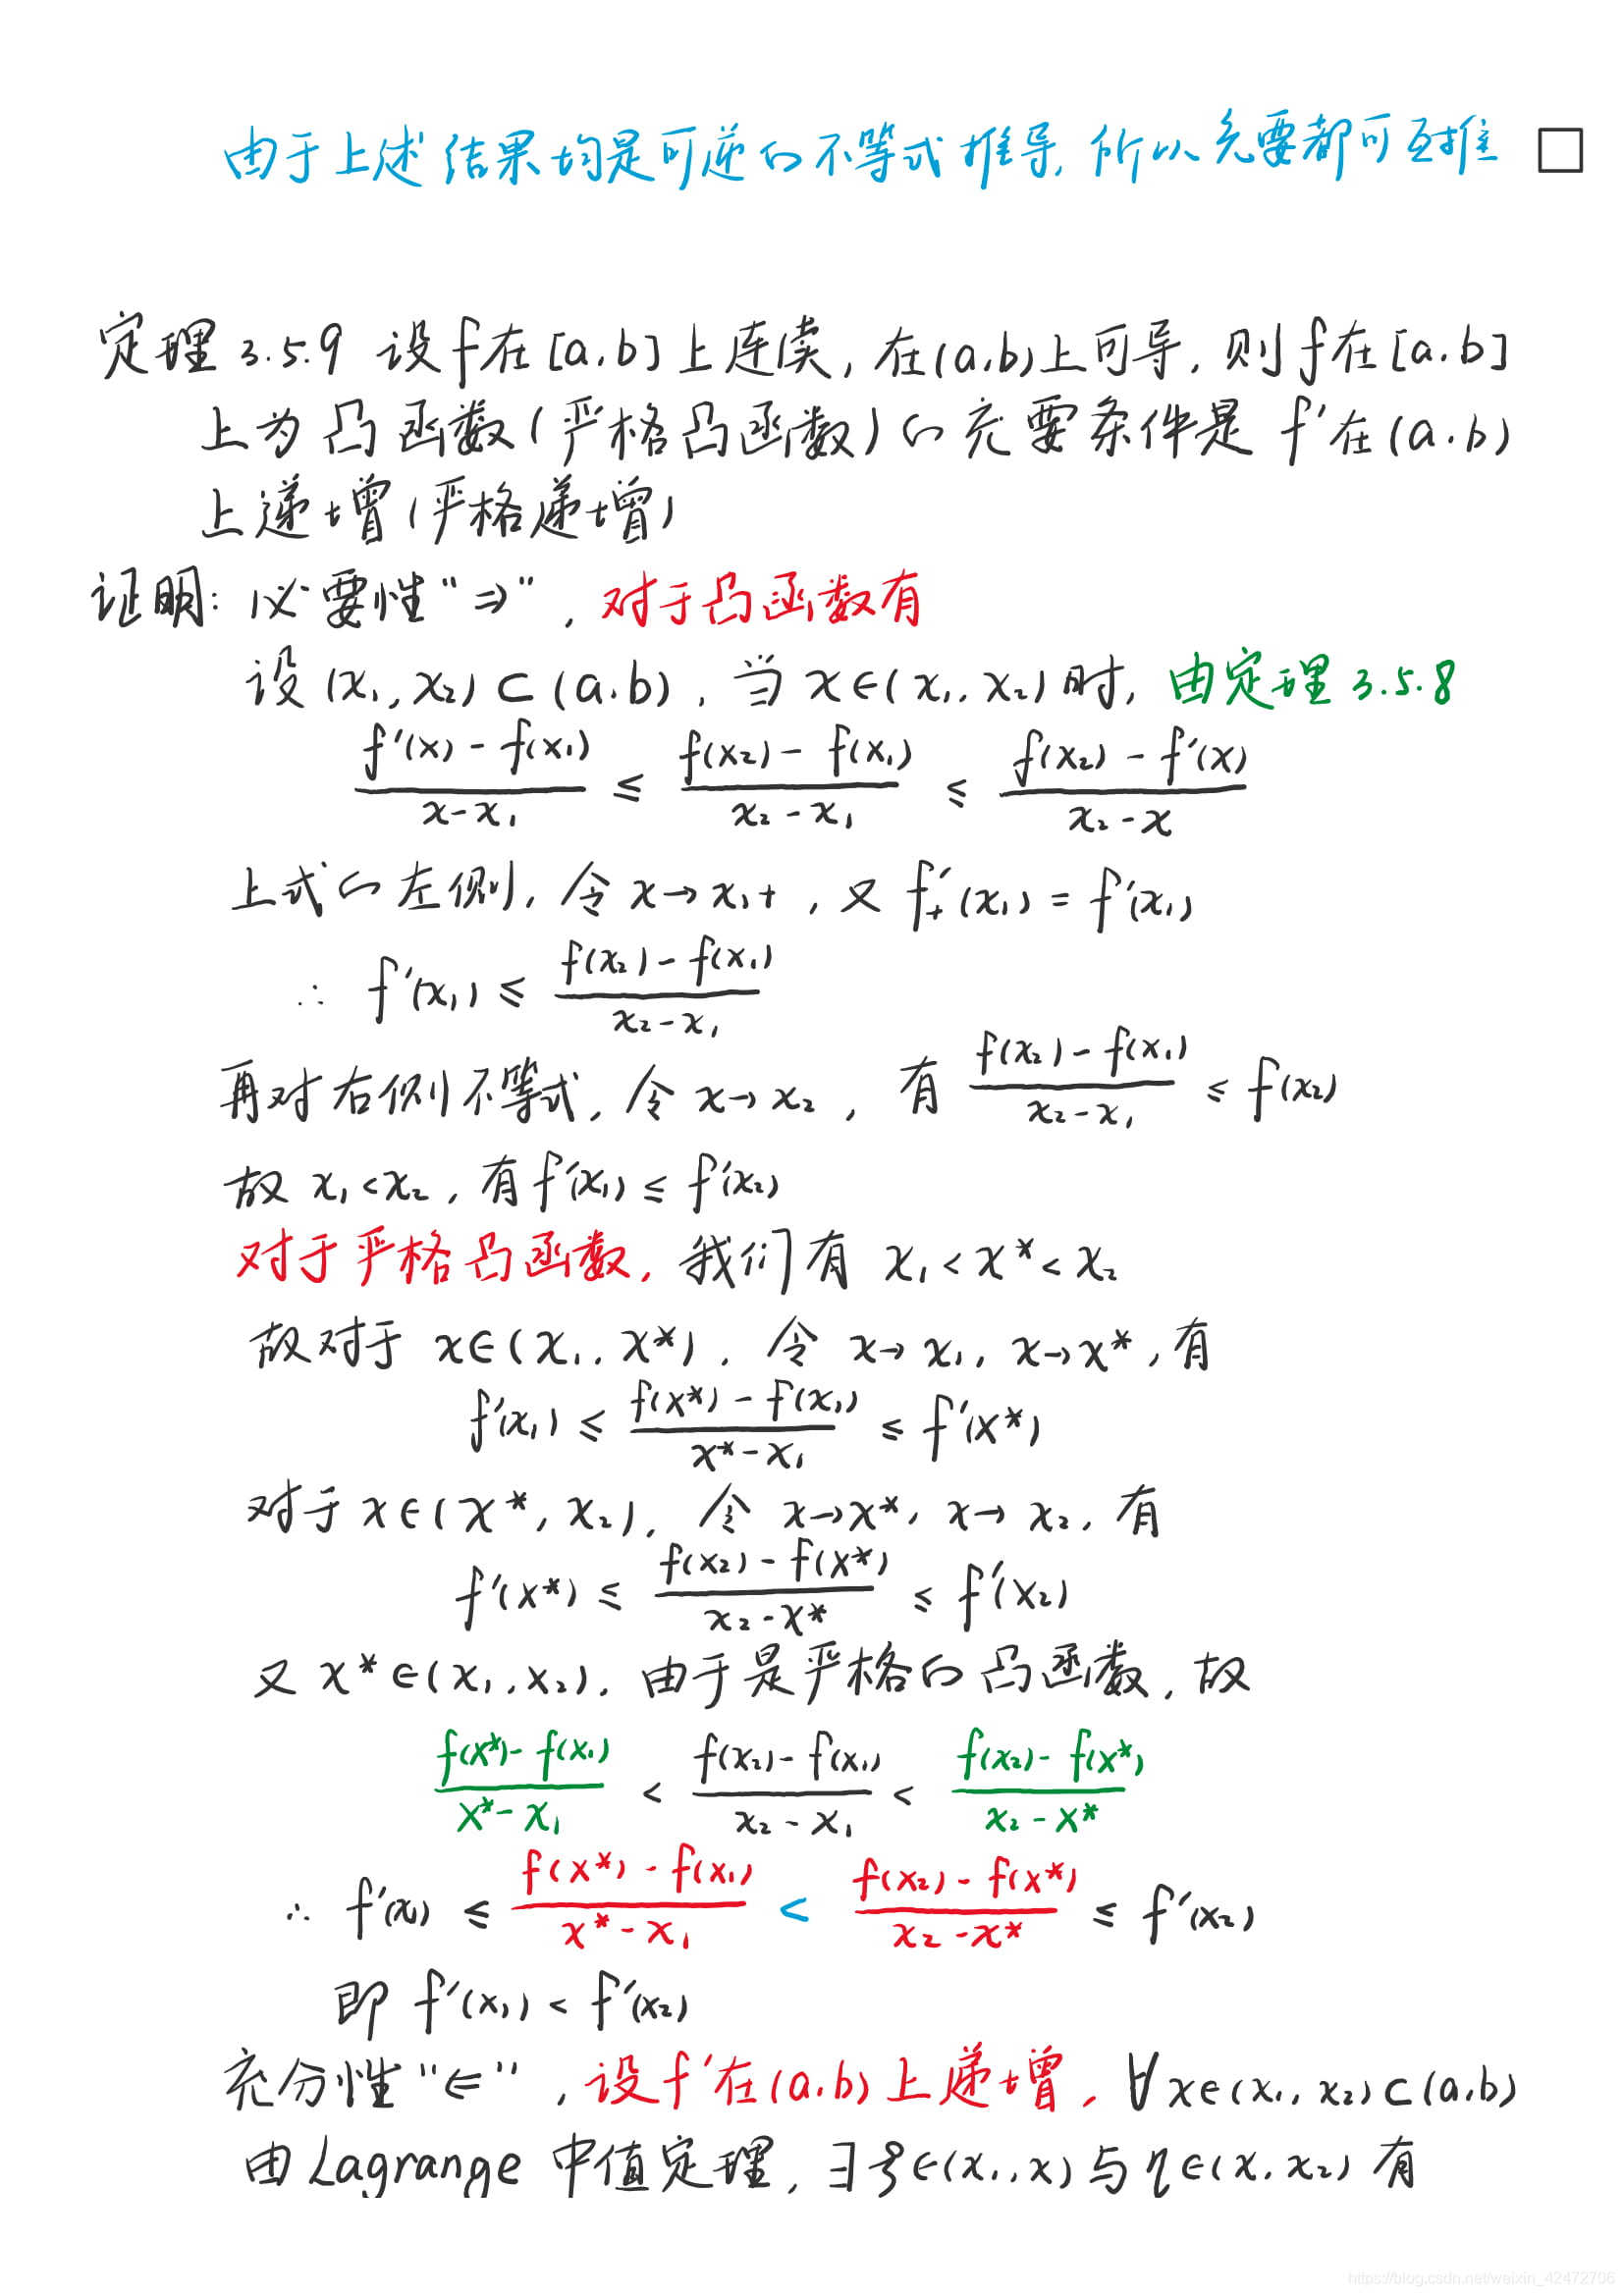 由于上述结果均是可逆的不等式推导,所以充要都可互推 □
定理3.5.9 设f在[a,b]上连续,在(a,b)上可导,则f在[a,b]
上为凸函数(严格凸函数)的充要条件是 f'在(a,b)
上递增(严格递增)
证明: 必要性"⇒",对于凸函数有
设(x₁,x₂)⊂(a,b),当x∈(x₁,x₂)时,由定理3.5.8
(f'(x)-f(x₁))/(x-x₁) ≤ (f(x₂)-f(x₁))/(x₂-x₁) ≤ (f(x₂)-f'(x))/(x₂-x)
上式的左侧,令x→x₁+,又f'₊(x₁)=f'(x₁)
∴ f'(x₁) ≤ (f(x₂)-f(x₁))/(x₂-x₁)
再对右侧不等式,令x→x₂,有 (f(x₂)-f(x₁))/(x₂-x₁) ≤ f(x₂)
故x₁<x₂,有f'(x₁)≤f'(x₂)
对于严格凸函数,我们有 x₁<x*<x₂
故对于 x∈(x₁,x*),令 x→x₁,x→x*,有
f'(x₁) ≤ (f(x*)-f(x₁))/(x*-x₁) ≤ f'(x*)
对于x∈(x*,x₂),令 x→x*,x→x₂,有
f'(x*) ≤ (f(x₂)-f(x*))/(x₂-x*) ≤ f'(x₂)
又 x*∈(x₁,x₂),由于是严格的凸函数,故
(f(x*)-f(x₁))/(x*-x₁) < (f(x₂)-f(x₁))/(x₂-x₁) < (f(x₂)-f(x*))/(x₂-x*)
∴ f'(x₁) ≤ (f(x*)-f(x₁))/(x*-x₁) < (f(x₂)-f(x*))/(x₂-x*) ≤ f'(x₂)
即 f'(x₁)<f'(x₂)
充分性"⇐",设f'在(a,b)上递增,∀x∈(x₁,x₂)⊂(a,b)
由Lagrange中值定理,∃ξ∈(x₁,x)与η∈(x,x₂)有
https://blog.csdn.net/weixin_42472706